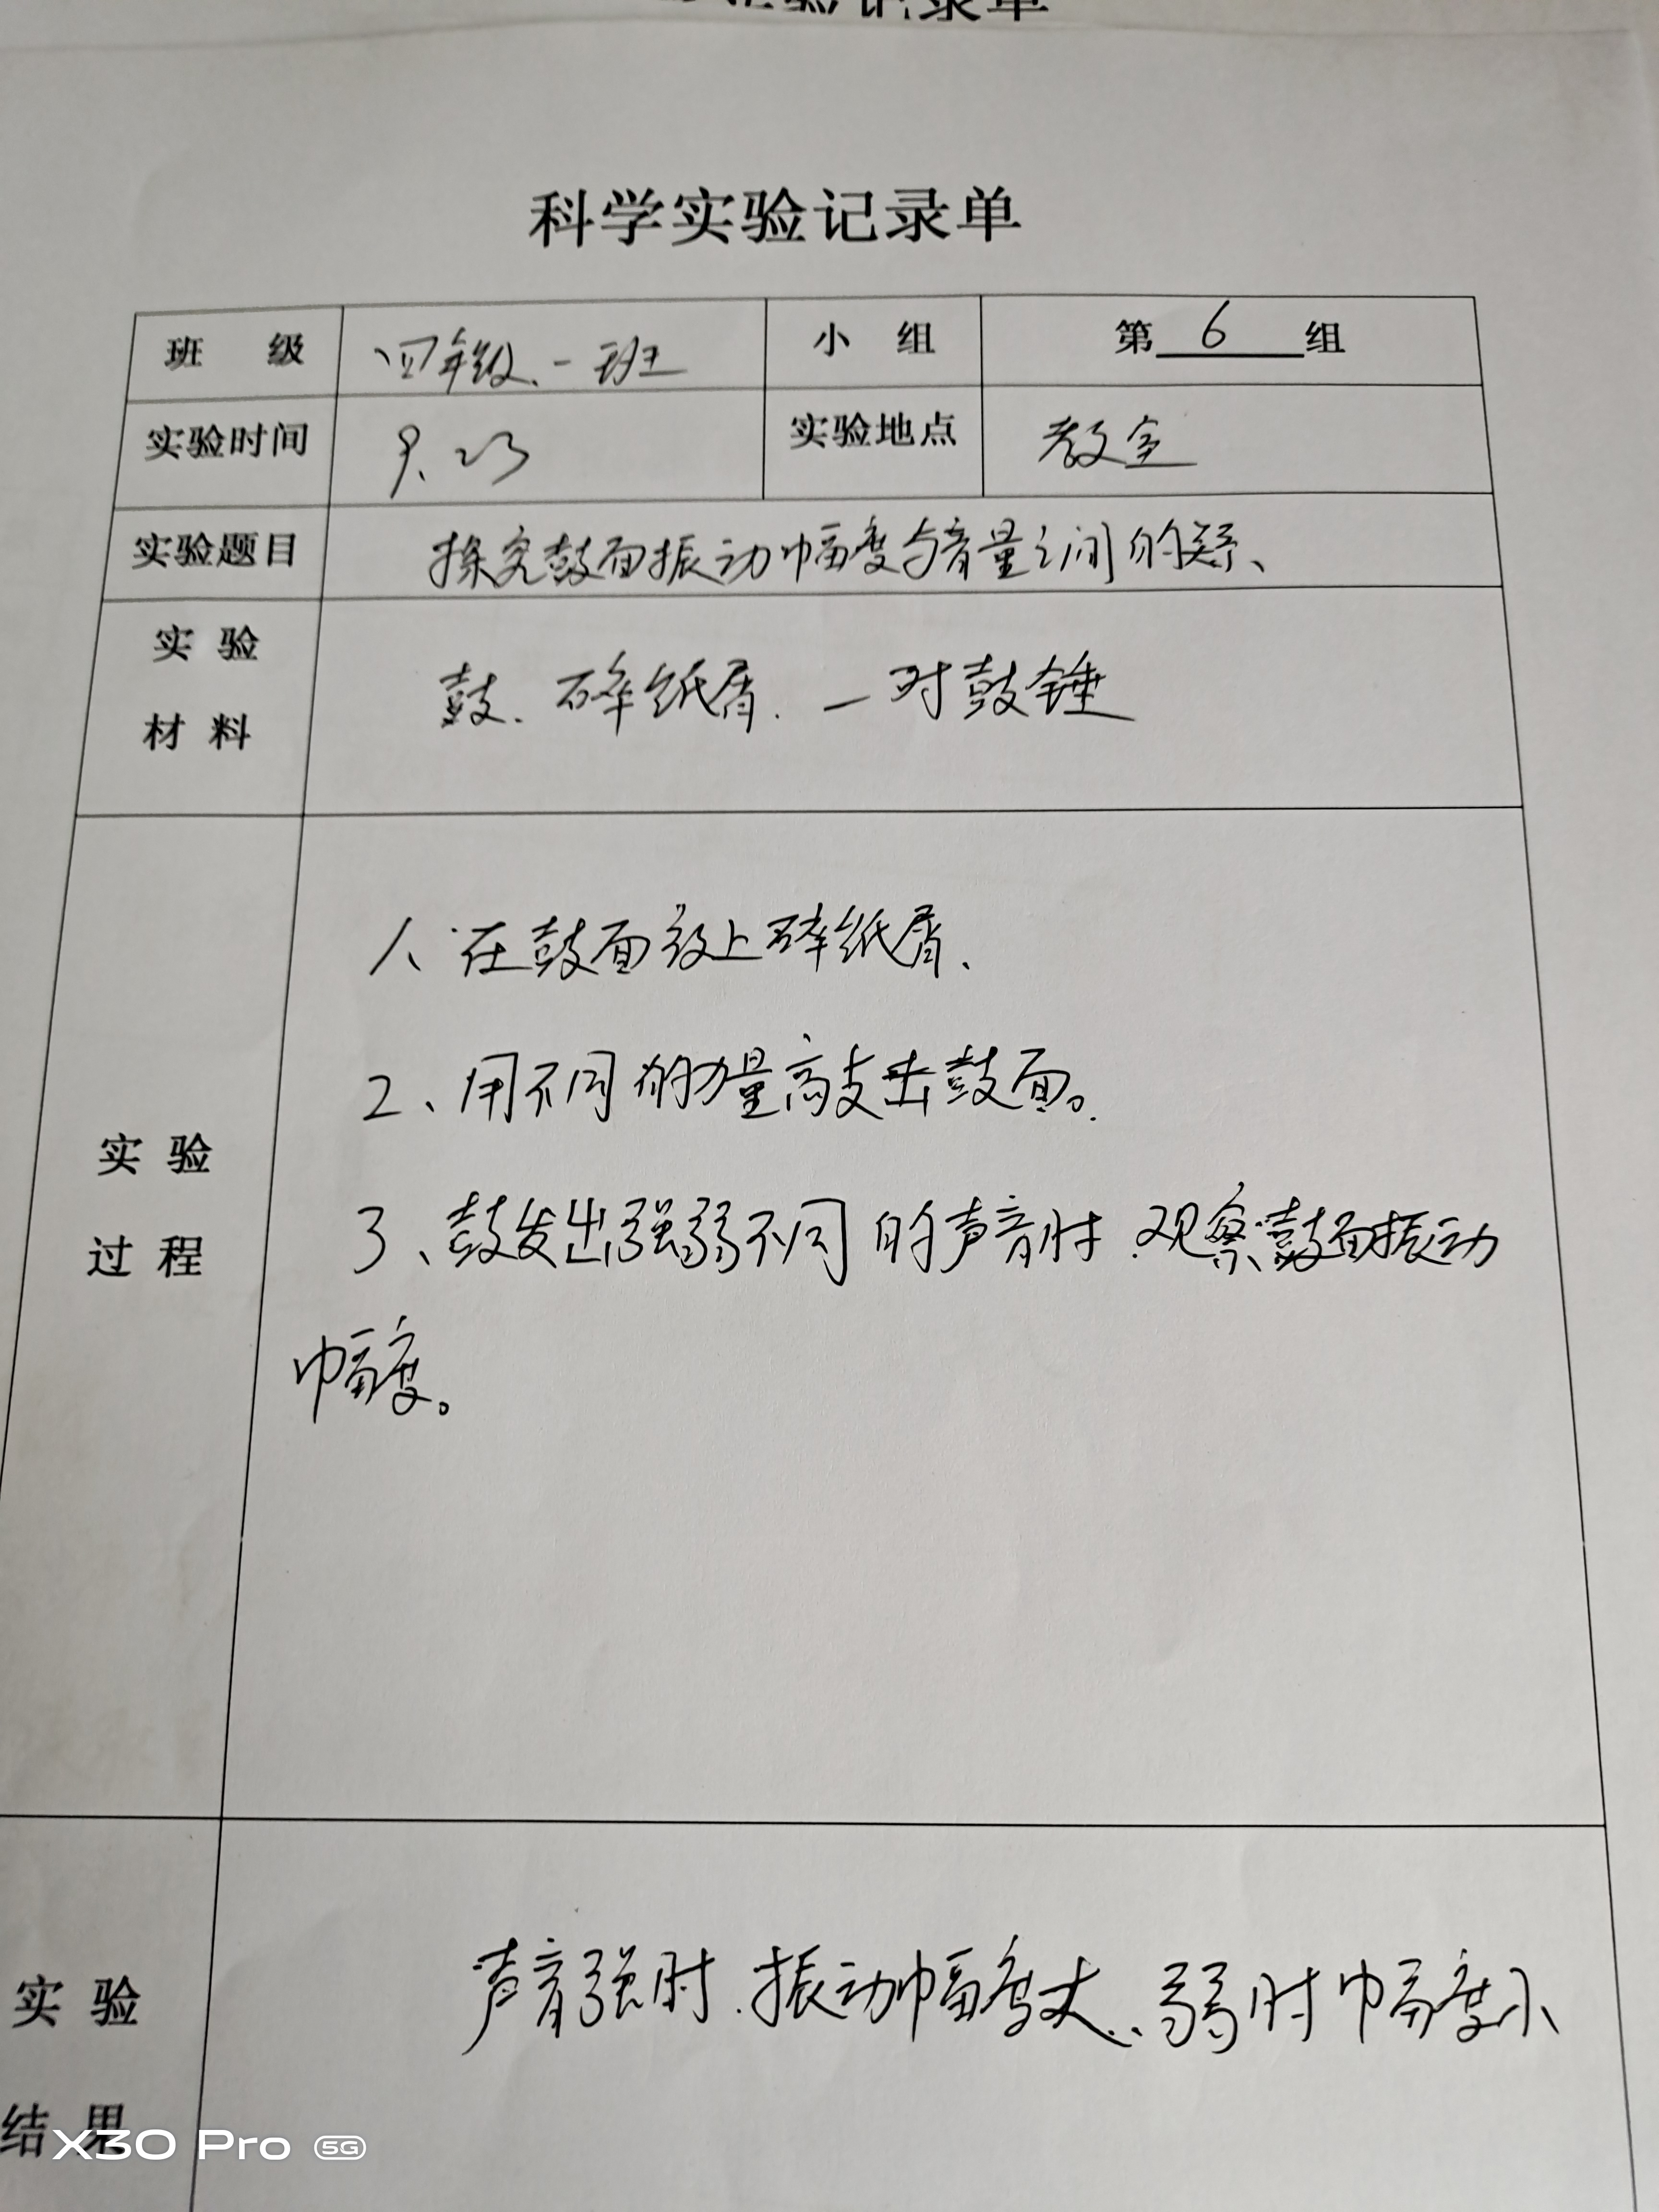 科学实验记录单
班 级 四年级、一班 小 组 第 6 组
实验时间 9.23 实验地点 教室
实验题目 探究鼓面振动幅度与音量之间的关系、
实 验
材 料
鼓、碎纸屑、一对鼓锤
1、在鼓面放上碎纸屑、
2、用不同的力量敲击鼓面。
实 验
过 程
3、鼓发出强弱不同的声音时、观察鼓面振动
幅度。
声音强时、振动幅度大、弱时幅度小
实 验
结 果
X30 Pro 5G